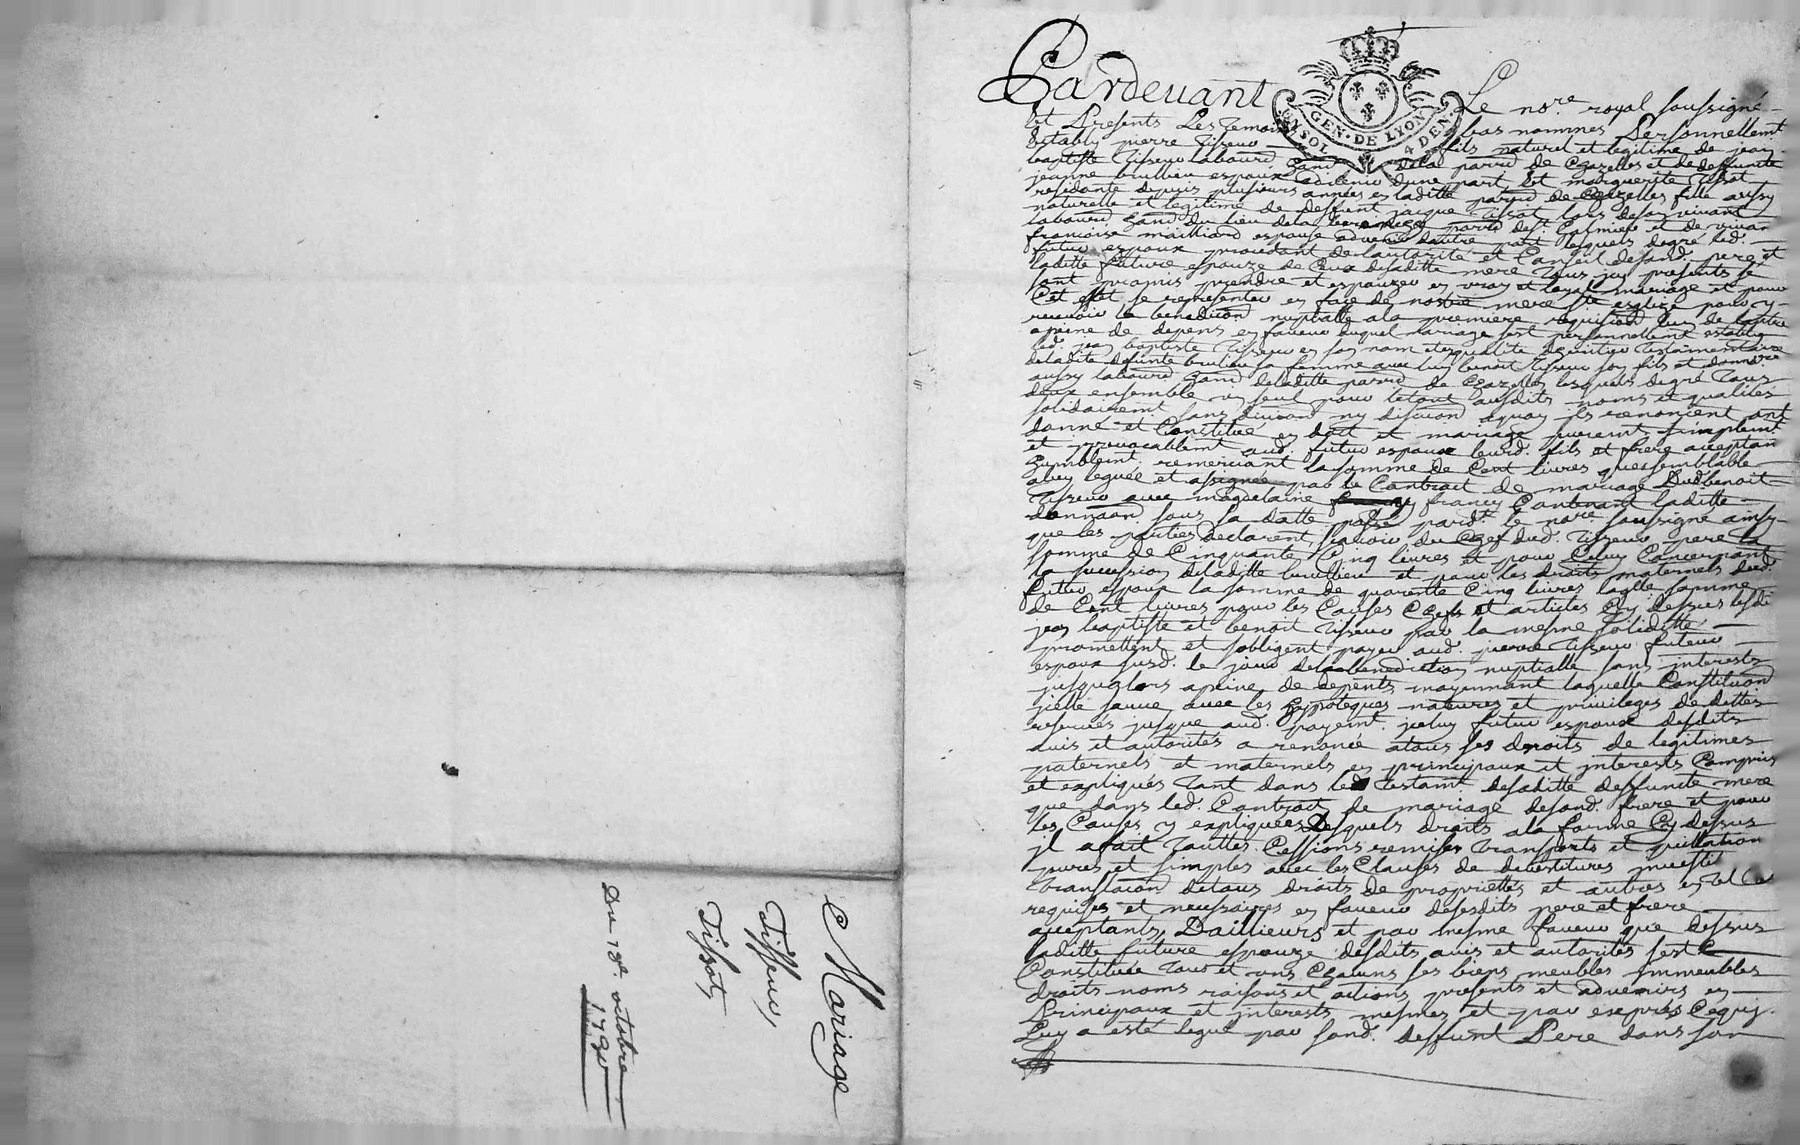 Mariage
Tisseur,
Tissot,
Du 18e. octobre
Pardevant Le nore. royal soussigné
Et Presents Les temoins bas nommes Personnellemt
Estably pierre Tisseur fils naturel et legitime de jean
baptiste Tisseur labourd. habd. dela parrd de Chazelles et de deffuncte
jeanne brullieu espoux advenir dune part Et marguerite Tissot
residante depuis plusieurs annees en laditte parrd de Chazelles fille aussy
naturelle et legitime de deffunt jacque Tissot lors de son vivant
labourd habd du lieu dela parrd de St. Galmier et de vivan
francoise mailliard espouse advenir dautre part lesquels degré led.
futur espoux procedant de lautorité et Conseil desond. pere et
laditte future espouze de Ceux desaditte mere tous jcy presents se
sont promis prendre et espouzer en vray et loyal mariage et pour
Cet effet se representer en face de nostre mere Ste esglize pour y
recevoir la benediction nuptialle ala premiere requisition lun de lautre
apeine de depens en faveur duquel mariage sest personnellemt estably
led. jean baptiste Tisseur en son nom et en qualite dheritier testamentaire
deladite defunte brulieu sa femme avec luy benoit Tisseur son fils et donnore
aussy labourd habd deladitte parrd de Chazelles lesquels degré tous
deux ensemble un seul pour letout ausdits noms et qualites
solidairemt sans division ny discution aquoy ils renoncent ont
donné et Constitué en dott et mariage puremt simplemt
et jrrevocablemt aud. futur espoux leurd. fils et frere acceptan
humblemt remerciant la somme de Cent livres quesemblable
aluy leguée et assignée par le Contract de mariage Dud benoit
Tisseur avec magdelaine francy Contenant laditte
donnaon sous sa datte passé pardt. le nore. soussigné ainsy
que les parties declarent scavoir du Chef dud. Tisseur pere la
somme de Cinquante Cinq livres et pour Celuy Concernant
la succession deladitte brullieu et pour les droits maternels dud.
futur espoux la somme de quarente Cinq livres laqlle somme
de Cent livres pour les Causes Chefs et articles Cy dessus lesdi
jean baptiste et benoit Tisseur par la mesme soliditté
promettent et sobligent payer aud. pierre Tisseur futeur
espoux susd. le jour dela benediction nuptialle sans interests
jusqualors apeine de depents moyennant laquelle Constitution
jcelle sauve avec les hypoteques natures et privileges de dottes
reservés jusque aud. payemt. jceluy futur espoux desdits
avis et autorités a renoncé atous ses droits de legitimes
paternels et maternels en principaux et interests Compris
et expliqués tant dans led testamt. desaditte deffuncte mere
que dans led. Contract de mariage desond. frere et pour
les Causes y expliquées Desquels droits ala forme Cy dessus
jl afait touttes Cessions remises transports et quittation
pures et simples avec les Clauses de devestitures jnvestit
translaion detous droits de propriettes et autres en tel Cas
requises et necessaires en faveur desesdits pere et frere
acceptants, Dailleurs et par mesme faveur que dessus
laditte future espouze desdits avis et autorités sest
Constituée tous et uns Chacuns ses biens meubles jmmeubles
droits noms raisons et actions presents et advenirs en
Principaux et interests mesmes et par exeprés Cequj
Luy a esté legué par sond. deffunt Pere dans son
GEN · DE LYON